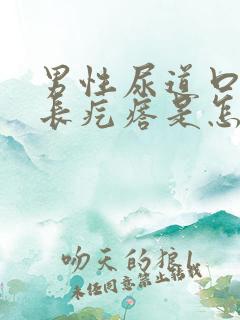 男性尿道口
长疙瘩是怎
吻天的狼
未经同意禁止转载